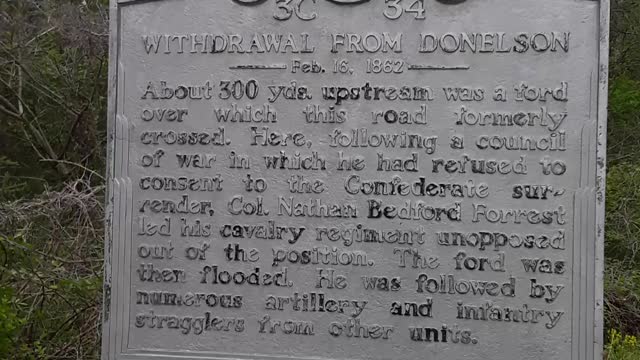 3C 34
WITHDRAWAL FROM DONELSON
Feb. 16, 1862
About 300 yds upstream was a ford
over which this road formerly
crossed. Here, following a council
of war in which he had refused to
consent to the Confederate sur-
render, Col. Nathan Bedford Forrest
led his cavalry regiment unopposed
out of the position. The ford was
then flooded. He was followed by
numerous artillery and infantry
stragglers from other units.